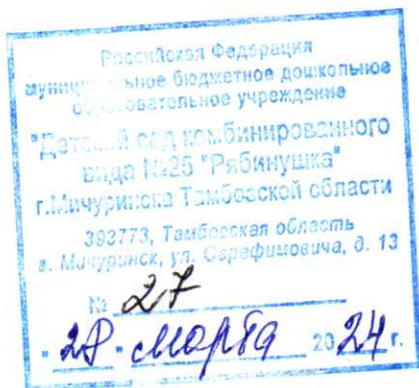 Российская Федерация
муниципальное бюджетное дошкольное
образовательное учреждение
"Детский сад комбинированного
вида №25 "Рябинушка"
г.Мичуринска Тамбовской области
393773, Тамбовская область
г. Мичуринск, ул. Серафимовича, д. 13
№ 27
"28" марта 2024 г.